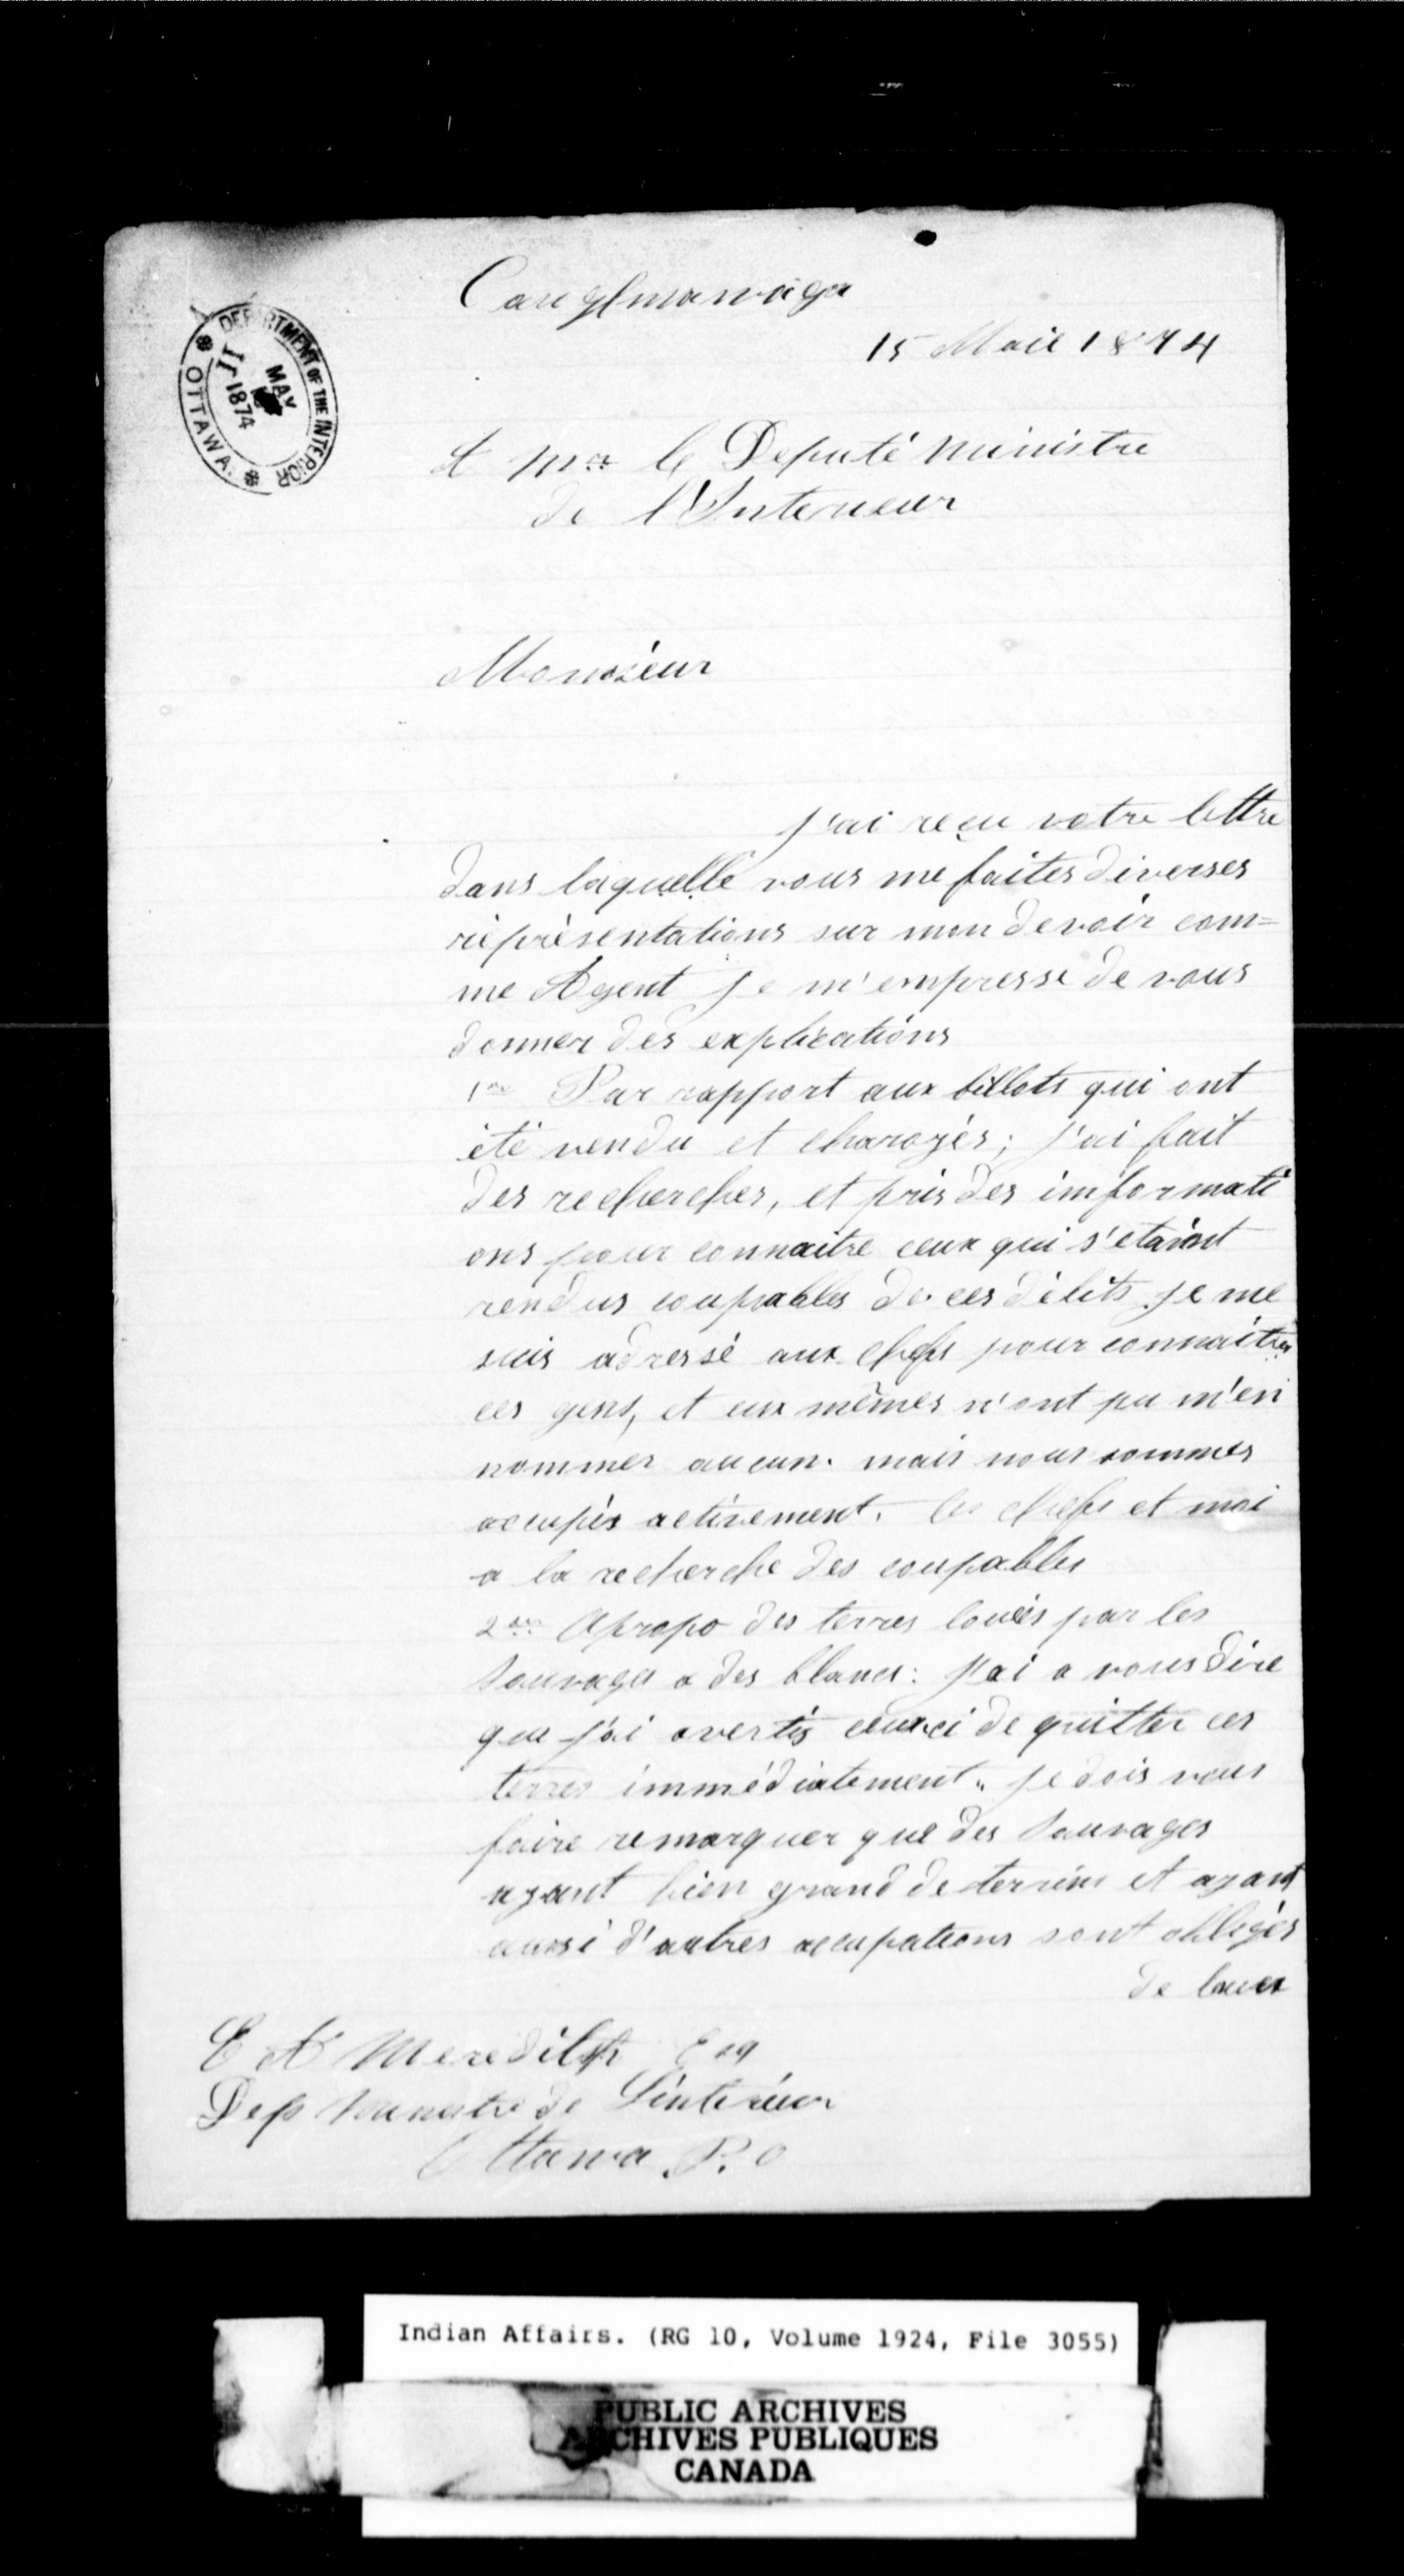 Caughnawaga
15 Mail 1874
DEPARTMENT OF THE INTERIOR
MAY
1874
OTTAWA.
A Mr le Deputé ministre
de l'Interieur
Monsieur
J'ai reçu votre lettre
dans laquelle vous me faites diverses
réprèsentations sur mon devoir com=
me Agent je m'empresse de vous
donner des explications
1re Par rapport aux billots qui ont
été vendu et charoyés; j'ai fait
des recherches, et pris des informati
ons pour connaitre ceux qui s'etaient
rendus coupables de ces délits. je me
suis adressé aux chefs pour connaitres
ces gens, et eux mêmes n'ont pu m'en
nommer aucun. mais nous sommes
occupés activement. les chefs et moi
a la recherche des coupables
2me Apropo des terres loués par les
Sauvages a des blancs: J'ai a vous dire
que j'ai avertis ceux ci de quitter ces
terres immédiatement. je dois vous
faire remarquer que des Sauvages
ayant bien grand de terrins et ayant
aussi d'autres occupations sont obligés
de louer
E A Meredith Esq
Dep Ministre de L'intérieur
Ottawa P. O
Indian Affairs. (RG 10, Volume 1924, File 3055)
PUBLIC ARCHIVES
ARCHIVES PUBLIQUES
CANADA